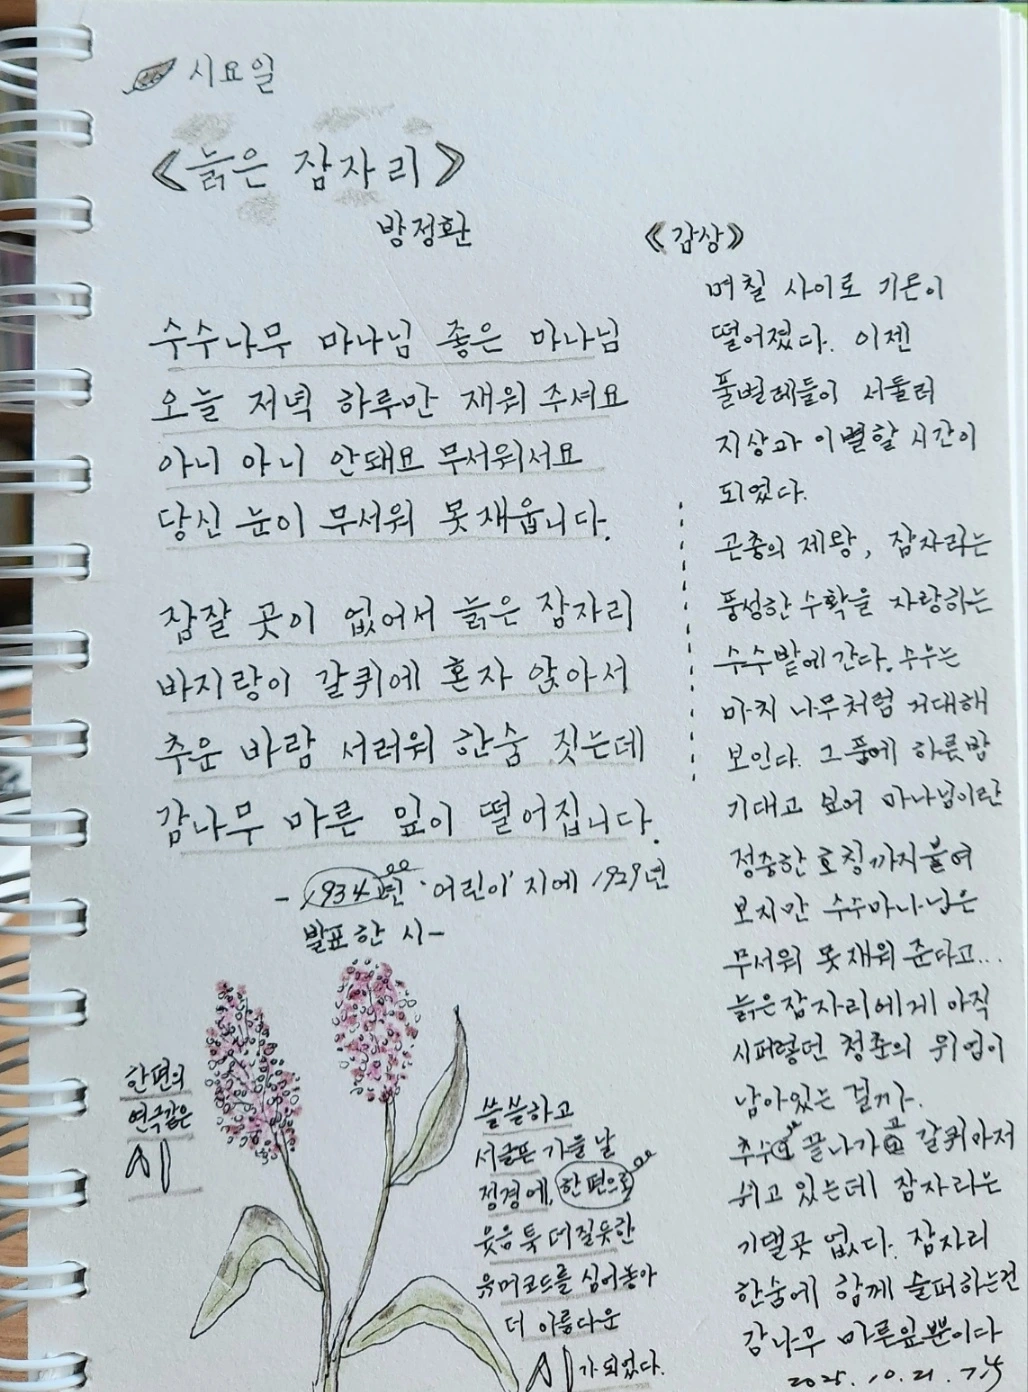 시요일
《늙은 잠자리》
방정환
수수나무 마나님 좋은 마나님
오늘 저녁 하루만 재워 주셔요
아니 아니 안돼요 무서워서요
당신 눈이 무서워 못 재웁니다.
잠잘 곳이 없어서 늙은 잠자리
바지랑이 갈퀴에 혼자 앉아서
추운 바람 서러워 한숨 짓는데
감나무 마른 잎이 떨어집니다.
- 1934년 '어린이' 지에 1929년
발표한 시-
한편의
연극같은
시
쓸쓸하고
서글픈 가을 날
정경에, 한편으로
웃음 툭 터질듯한
유머코드를 심어놓아
더 아름다운
시가 되었다.
《감상》
며칠 사이로 기온이
떨어졌다. 이젠
풀벌레들이 서둘러
지상과 이별할 시간이
되었다.
곤충의 제왕, 잠자리는
풍성한 수확을 자랑하는
수수밭에 간다. 수수는
마치 나무처럼 거대해
보인다. 그 품에 하룻밤
기대고 싶어 마나님이란
정중한 호칭까지 붙여
보지만 수수마나님은
무서워 못 재워 준다고...
늙은 잠자리에게 아직
시퍼렇던 청춘의 위엄이
남아있는 걸까.
추수 끝나가고 갈퀴마저
쉬고 있는데 잠자리는
기댈곳 없다. 잠자리
한숨에 함께 슬퍼하는건
감나무 마른잎뿐이다
2025.10.21.